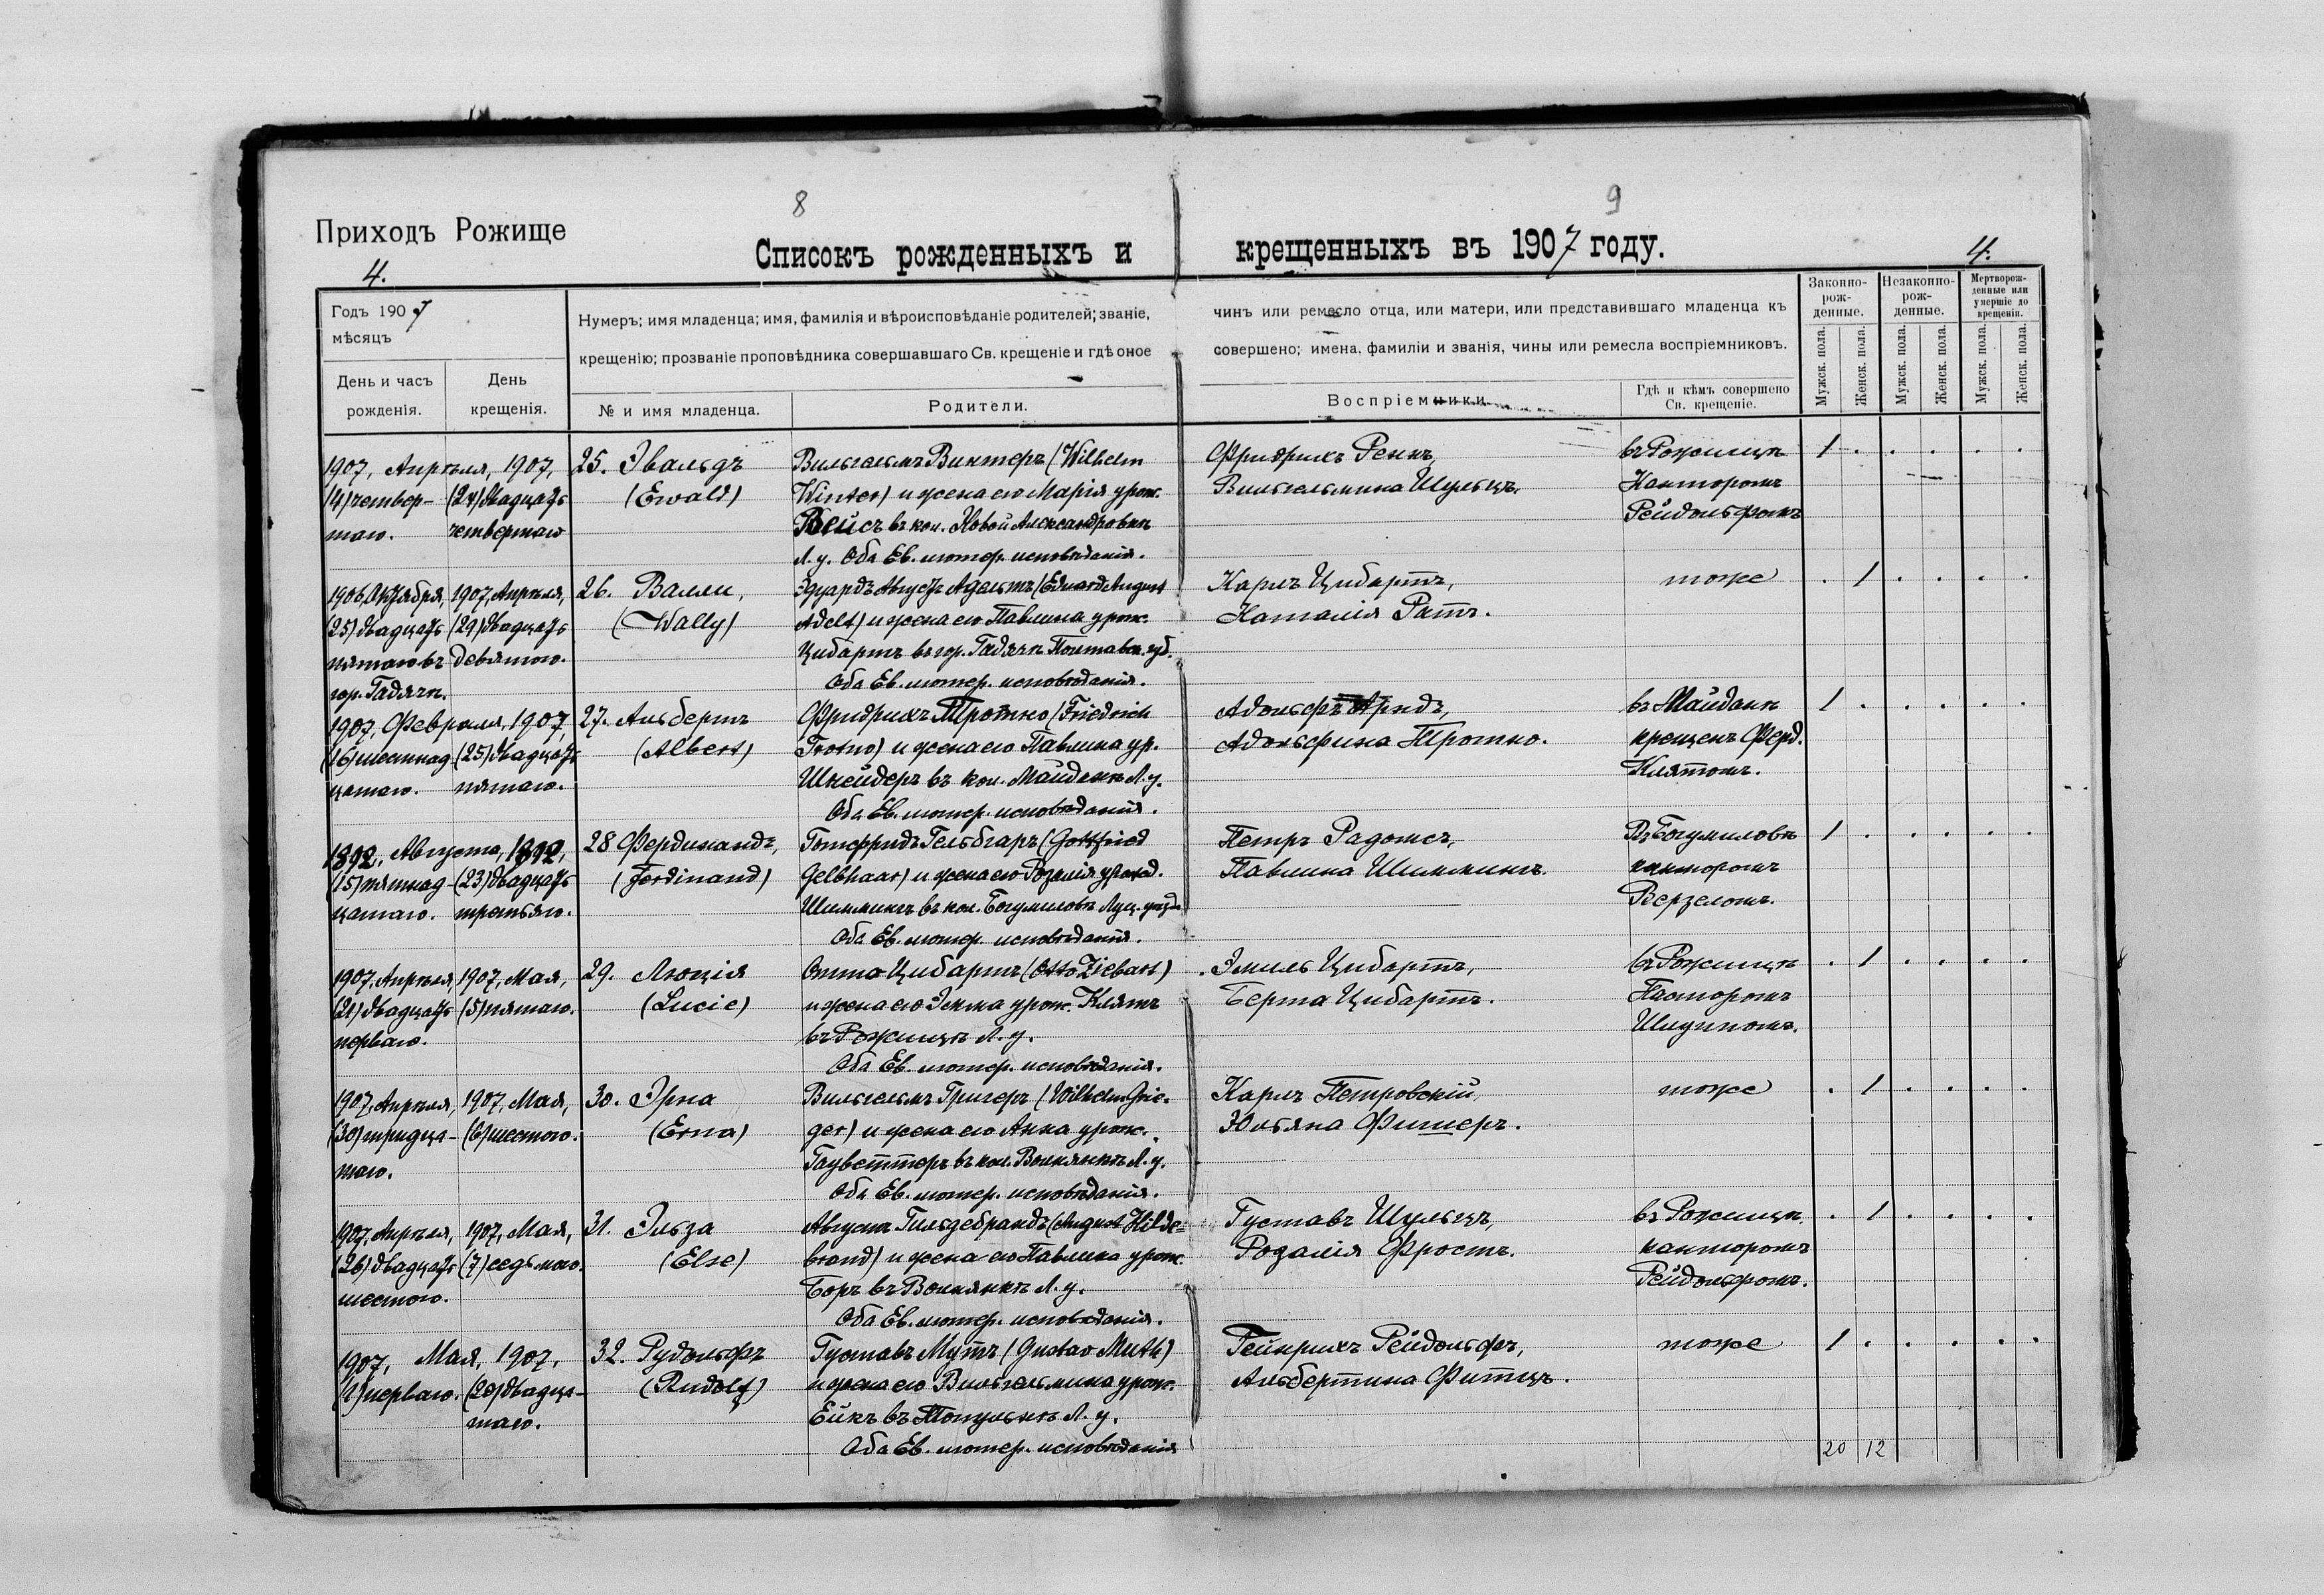 8
9
Приходъ Рожище
Списокъ рожденныхъ и крещенныхъ въ 1907 году.
4.
4.
Годъ 1907
мѣсяцъ
День и часъ
рожденія.
День
крещенія.
Нумеръ; имя младенца; имя, фамилія и вѣроисповѣданіе родителей; званіе,
чинъ или ремесло отца, или матери, или представившаго младенца къ
крещенію; прозваніе проповѣдника совершавшаго Св. крещеніе и гдѣ оное
совершено; имена, фамиліи и званія, чины или ремесла воспріемниковъ.
№ и имя младенца.
Родители.
Воспріемники
Гдѣ и кѣмъ совершено
Св. крещеніе.
Законно-
рож-
денные.
Незаконно-
рож-
денные.
Мертворож-
денные или
умершіе до
крещенія.
Мужск. пола.
Женск. пола.
Мужск. пола.
Женск. пола.
Мужск. пола.
Женск. пола.
1907, Апрѣля, 1907,
(4) четвер-
таго.
(24) двадцать
четвертаго
25. Эвальдъ
(Ewald)
Вильгельмъ Винтеръ (Wilhelm
Winter) и жена его Марія урож.
Вейсъ въ кол. Новой Александровкѣ
Л. у. Оба Ев. лютер. исповѣданія.
Фридрихъ Ренкъ,
Вильгельмина Шульцъ.
въ Рожищѣ
Канторомъ
Рейдольфомъ
1 . . . . .
1906, Октября,
(25) двадцать
пятаго въ
гор. Гадячѣ.
1907, Апрѣля,
(29) двадцать
девятаго.
26. Валли,
(Wally)
Эдуардъ Августъ Адельтъ (Eduard August
Adelt) и жена его Павлина урож.
Цибартъ въ гор. Гадячѣ Полтавск. губ.
Оба Ев. лютер. исповѣданія.
Карлъ Цибартъ,
Наталія Ратъ.
тоже
. 1 . . . .
1907, Февраля, 1907,
(16) шестнад-
цатаго.
(25) двадцать
пятаго.
27. Альбертъ
(Albert)
Фридрихъ Тротно (Friedrich
Trotno) и жена его Павлина ур.
Шнейдеръ въ кол. Майданѣ Л. у.
Оба Ев. лютер. исповѣданія.
Адольфъ Аридъ,
Адольфина Тротно.
въ Майданѣ
крещенъ Ферд.
Клятомъ.
1 . . . . .
1892, Августа, 1892,
(15) пятнад-
цатаго.
(23) двадцать
третьяго.
28 Фердинандъ,
(Ferdinand)
Готфридъ Гельбгаръ (Gottfried
Gelbhaar) и жена его Розалія урожд.
Шиммингъ въ кол. Богумиловкѣ Луц. уѣзда
Оба Ев. лютер. исповѣданія.
Петръ Радомсъ,
Павлина Шиммингъ.
Въ Богумиловкѣ
канторомъ
Верзеломъ.
1 . . . . .
1907, Апрѣля,
(21) двадцать
перваго.
1907, Мая,
(5) пятаго.
29. Люція
(Lucie)
Отто Цибартъ (Otto Ziebart)
и жена его Эмма урож. Клятъ
въ Рожищѣ Л. у.
Оба Ев. лютер. исповѣданія.
Эмиль Цибартъ,
Берта Цибартъ.
въ Рожищѣ
Пасторомъ
. 1 . . . .
1907, Апрѣля,
(30) тридца-
таго.
1907, Мая,
(6) шестого.
30. Эрна
(Erna)
Вильгельмъ Григеръ (Wilhelm Grie-
ger) и жена его Анна урож.
Гауветтеръ въ кол. Волнянкѣ Л. у.
Оба Ев. лютер. исповѣданія.
Карлъ Петровскій,
Юльяна Фишеръ.
тоже
. 1 . . . .
1907, Апрѣля,
(26) двадцать
шестого.
1907, Мая,
(7) седьмого.
31. Эльза
(Else)
Августъ Гильдебрандъ (August Hilde-
brand) и жена его Павлина урож.
Боръ въ Волнянкѣ Л. у.
Оба Ев. лютер. исповѣданія.
Густавъ Шульцъ,
Розалія Фростъ.
въ Рожищѣ
канторомъ
Рейдольфомъ.
. 1 . . . .
1907, Мая, 1907,
(1) перваго.
(20) двадца-
таго.
32. Рудольфъ
(Rudolf)
Густавъ Мутъ (Gustav Muth)
и жена его Вильгельмина урож.
Ейкъ въ Топульнѣ Л. у.
Оба Ев. лютер. исповѣданія
Гейнрихъ Рейдольфъ,
Альбертина Фитцъ.
тоже
1 . . . . .
20 12